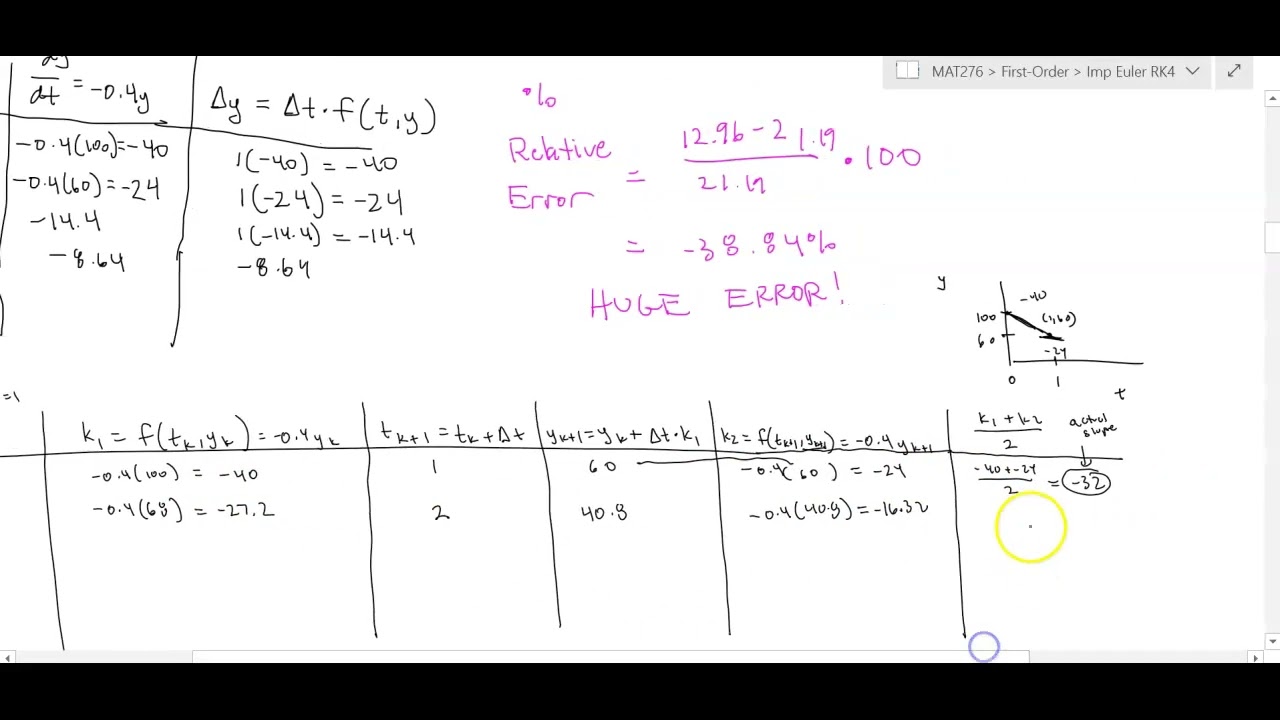 MAT276 > First-Order > Imp Euler RK4
dy/dt = -0.4y
Δy = Δt·f(t,y)
-0.4(100)=-40
1(-40) = -40
-0.4(60)=-24
1(-24) = -24
-14.4
1(-14.4) = -14.4
-8.64
-8.64
%
Relative
Error
= (12.96-21.19)/21.19 • 100
= -38.84%
HUGE ERROR!
y
-40
100
(1,60)
60
-24
0 1
t
=1
k1 = f(tk,yk) = -0.4yk
tk+1 = tk+Δt
yk+1 = yk+Δt·k1
k2=f(tk+1,yk+1) = -0.4yk+1
(k1+k2)/2
actual
slope
-0.4(100) = -40
1
60
-0.4(60) = -24
(-40+-24)/2 = -32
-0.4(68) = -27.2
2
40.8
-0.4(40.8)=-16.32